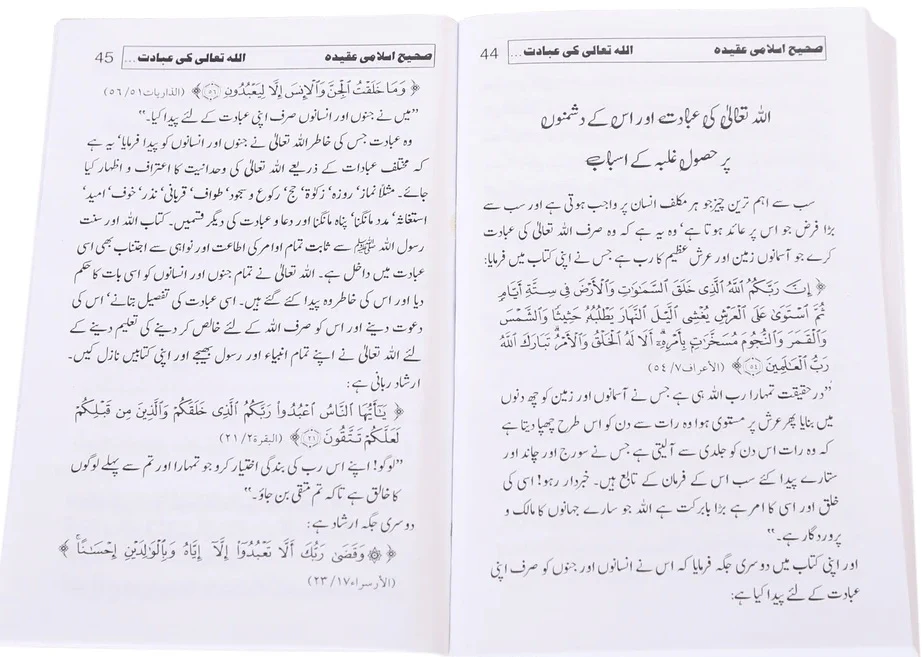 صحیح اسلامی عقیدہ اللہ تعالیٰ کی عبادت ... 44
اللہ تعالیٰ کی عبادت اور اس کے دشمنوں
پر حصول غلبہ کے اسباب
سب سے اہم ترین چیز جو ہر مکلف انسان پر واجب ہوتی ہے اور سب سے
بڑا فرض جو اس پر عائد ہوتا ہے‘ وہ یہ ہے کہ وہ صرف اللہ تعالیٰ کی عبادت
کرے جو آسمانوں زمین اور عرش عظیم کا رب ہے جس نے اپنی کتاب میں فرمایا:
﴿ إِنَّ رَبَّكُمُ اللَّهُ الَّذِي خَلَقَ السَّمَاوَاتِ وَالْأَرْضَ فِي سِتَّةِ أَيَّامٍ
ثُمَّ اسْتَوَىٰ عَلَى الْعَرْشِ يُغْشِي اللَّيْلَ النَّهَارَ يَطْلُبُهُ حَثِيثًا وَالشَّمْسَ
وَالْقَمَرَ وَالنُّجُومَ مُسَخَّرَاتٍ بِأَمْرِهِ ۗ أَلَا لَهُ الْخَلْقُ وَالْأَمْرُ ۗ تَبَارَكَ اللَّهُ
رَبُّ الْعَالَمِينَ (٥٤) ﴾ (الأعراف٧/ ٥٤)
”در حقیقت تمہارا رب اللہ ہی ہے جس نے آسمانوں اور زمین کو چھ دنوں
میں بنایا پھر عرش پر مستوی ہوا وہ رات سے دن کو اس طرح چھپا دیتا ہے
کہ وہ رات اس دن کو جلدی سے آلیتی ہے جس نے سورج اور چاند اور
ستارے پیدا کئے سب اس کے فرمان کے تابع ہیں۔ خبردار رہو! اسی کی
خلق اور اسی کا امر ہے بڑا بابرکت ہے اللہ جو سارے جہانوں کا مالک و
پروردگار ہے۔“
اور اپنی کتاب میں دوسری جگہ فرمایا کہ اس نے انسانوں اور جنوں کو صرف اپنی
عبادت کے لئے پیدا کیا ہے:
صحیح اسلامی عقیدہ اللہ تعالیٰ کی عبادت ... 45
﴿ وَمَا خَلَقْتُ الْجِنَّ وَالْإِنسَ إِلَّا لِيَعْبُدُونِ (٥٦) ﴾ (الذاريات٥١/ ٥٦)
”میں نے جنوں اور انسانوں صرف اپنی عبادت کے لئے پیدا کیا۔“
وہ عبادت جس کی خاطر اللہ تعالیٰ نے جنوں اور انسانوں کو پیدا فرمایا‘ یہ ہے
کہ مختلف عبادات کے ذریعے اللہ تعالیٰ کی وحدانیت کا اعتراف و اظہار کیا
جائے۔ مثلاً نماز‘ روزہ‘ زکوٰۃ‘ حج‘ رکوع و سجود‘ طواف‘ قربانی‘ نذر‘ خوف‘ امید‘
استغاثہ‘ مدد مانگنا‘ پناہ مانگنا اور دعا و عبادت کی دیگر قسمیں۔ کتاب اللہ اور سنت
رسول اللہ ﷺ سے ثابت تمام اوامر کی اطاعت اور نواہی سے اجتناب بھی اسی
عبادت میں داخل ہے۔ اللہ تعالیٰ نے تمام جنوں اور انسانوں کو اسی بات کا حکم
دیا اور اس کی خاطر وہ پیدا کئے گئے ہیں۔ اسی عبادت کی تفصیل بتانے‘ اس کی
دعوت دینے اور اس کو صرف اللہ کے لئے خالص کر دینے کی تعلیم دینے کے
لئے اللہ تعالیٰ نے اپنے تمام انبیاء اور رسول بھیجے اور اپنی کتابیں نازل کیں۔
ارشاد ربانی ہے:
﴿ يَا أَيُّهَا النَّاسُ اعْبُدُوا رَبَّكُمُ الَّذِي خَلَقَكُمْ وَالَّذِينَ مِن قَبْلِكُمْ
لَعَلَّكُمْ تَتَّقُونَ (٢١) ﴾ (البقرة٢/ ٢١)
”لوگو! اپنے اس رب کی بندگی اختیار کرو جو تمہارا اور تم سے پہلے لوگوں
کا خالق ہے تاکہ تم متقی بن جاؤ۔“
دوسری جگہ ارشاد ہے:
﴿ ۞ وَقَضَىٰ رَبُّكَ أَلَّا تَعْبُدُوا إِلَّا إِيَّاهُ وَبِالْوَالِدَيْنِ إِحْسَانًا ﴾
(الأسراء١٧/ ٢٣)